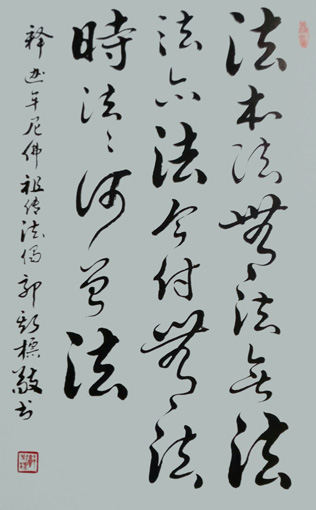 法本法無法無法
法亦法今付無法
時法〻何曾法
释迦牟尼佛祖传法偈 郭標敬书